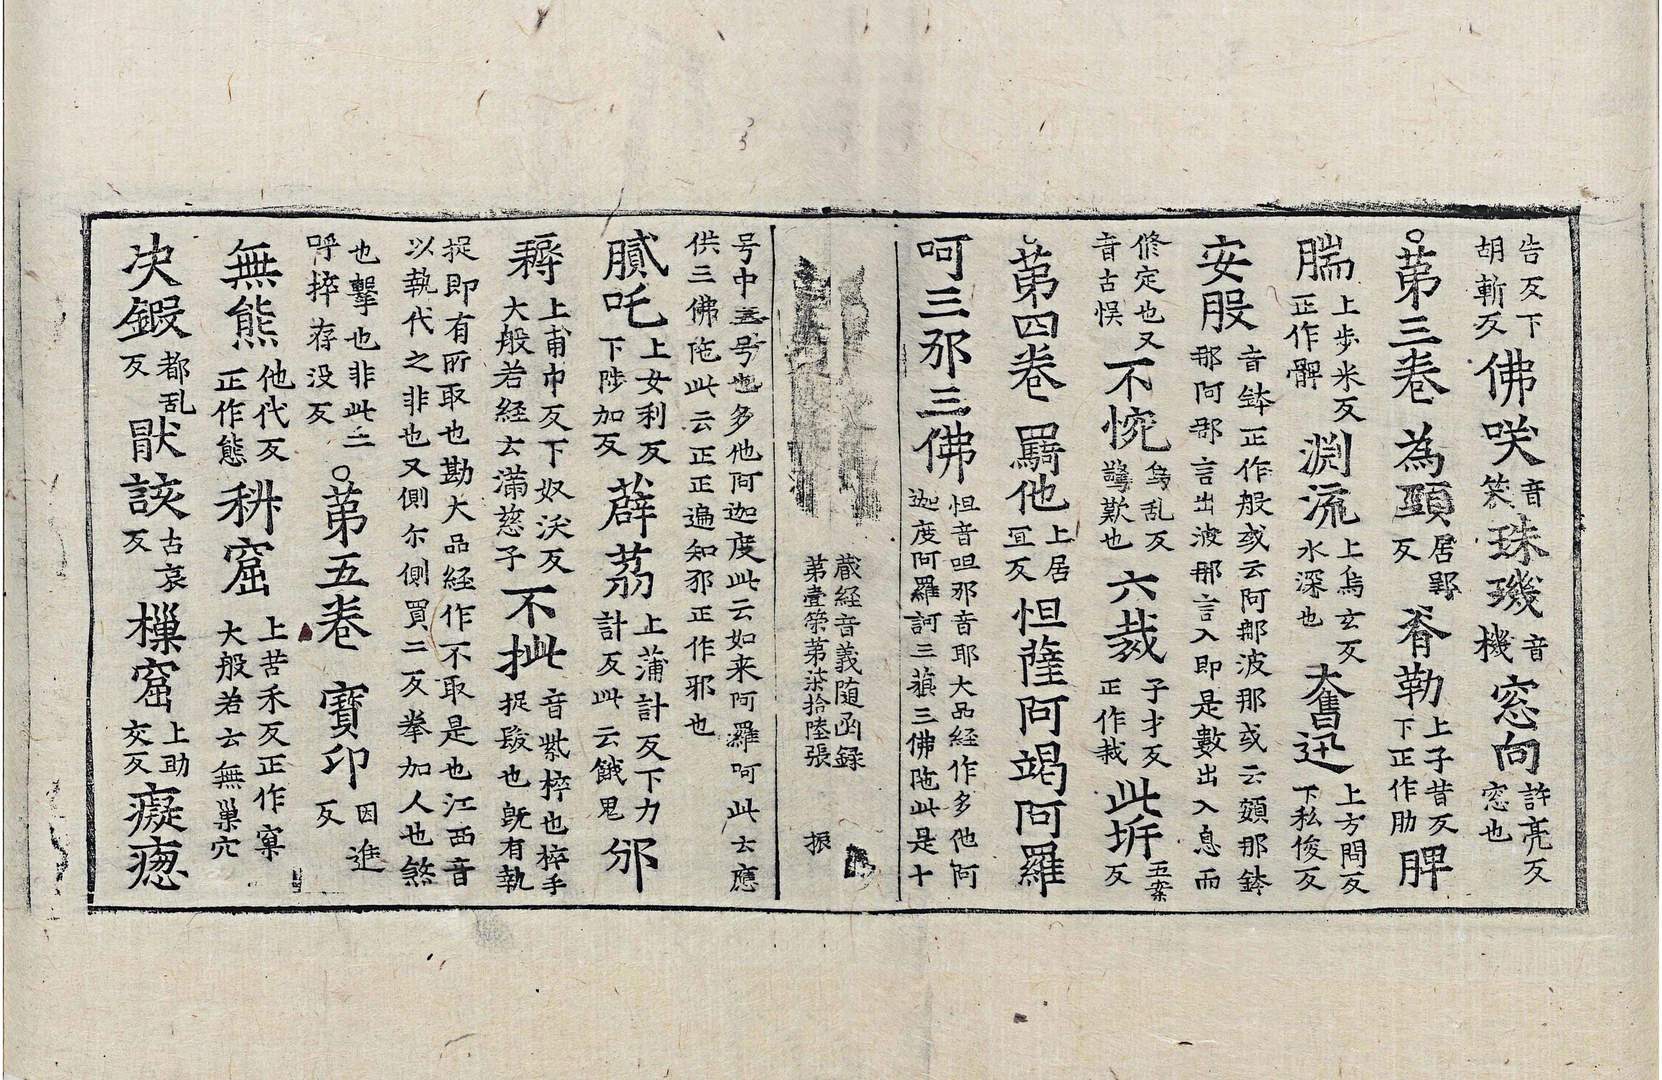 告反下胡斬反佛咲音笑珠璣音機窓向許亮反窓也
第三卷為頭居郢反脊勒上子昔反下正作肋脾
腨上步米反正作髀淵流上烏玄反水深也奮迅上方問反下私俊反
安股音鉢正作般或云阿那波那或云頞那鉢那阿那言出波那言入即是數出入息而
修定也又音古悮不惋烏乱反驚歎也六裁子才反正作栽此坼五案反
第四卷羈他上居宜反怛薩阿竭阿羅
呵三耶三佛怛音呾那音耶大品經作多他阿迦度阿羅訶三藐三佛陁此是十
藏經音義随函録
第壹筞第柒拾陸張 振
号中三号也多他阿迦度此云如来阿羅呵此云應供三佛陁此云正正遍知邪正作耶也
膩吒上女利反下陟加反薜荔上蒲計反下力計反此云餓鬼邠
耨上甫巾反下奴沃反大般若経云滿慈子不㧗音紫捽也捽手捉髮也旣有執
捉即有所取也勘大品経作不取是也江西音以執代之非也又側尔側買二反拳加人也煞
也擊也非此二呼捽存没反第五卷寶印因進反
無熊他代反正作態科窟上苦禾反正作窠大般若云無巢穴
决鍛都乱反猒該古哀反樔窟上助交反癡㥲